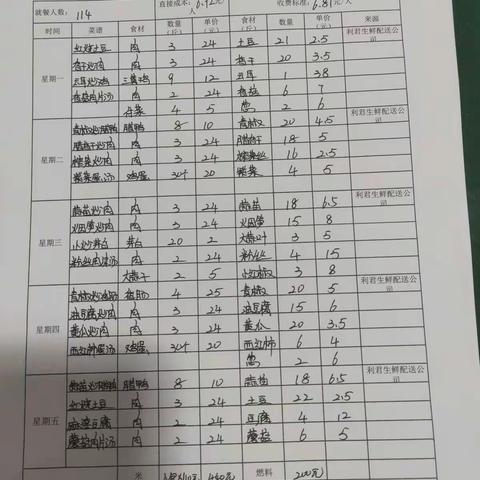 就餐人数: 114 直接成本: 6.92元/人 收费标准: 6.81元/人
时间 菜谱 食材 数量(斤) 单价(元) 食材 数量(斤) 单价(元) 来源
星期一 红烧土豆 肉 3 24 土豆 21 2.5 利君生鲜配送公司
香干炒肉 肉 3 24 香干 20 3.5
三黄鸡 9 12 木耳 1 38
香菇肉片汤 肉 2 24 香菇 6 7
4 5 葱 2 6
星期二 腊鸭 8 10 青椒 20 4.5 利君生鲜配送公司
腊干炒肉 肉 3 24 腊干 18 5
榨菜炒肉 肉 3 24 榨菜丝 16 2.5
紫菜蛋汤 鸡蛋 30个 20 紫菜 4 5
星期三 蒜苗炒肉 肉 3 24 蒜苗 18 6.5 利君生鲜配送公司
肉 3 24 15 8
小炒 20 2 3 5
粉丝肉沫汤 肉 2 24 粉丝 4 15
2 5 小红椒 3 8
星期四 4 25 青椒 20 5 利君生鲜配送公司
油豆腐炒肉 肉 3 24 油豆腐 15 6
黄瓜炒肉 肉 3 24 黄瓜 20 3.5
西红柿蛋汤 鸡蛋 30个 20 西红柿 6 4
葱 2 6
星期五 腊鸭 8 10 蒜苗 18 6.5 利君生鲜配送公司
红烧土豆 肉 3 24 土豆 22 2.5
麻婆豆腐 肉 2 24 豆腐 4 12
蘑菇肉片汤 肉 2 24 蘑菇 6 5
米 燃料 200元